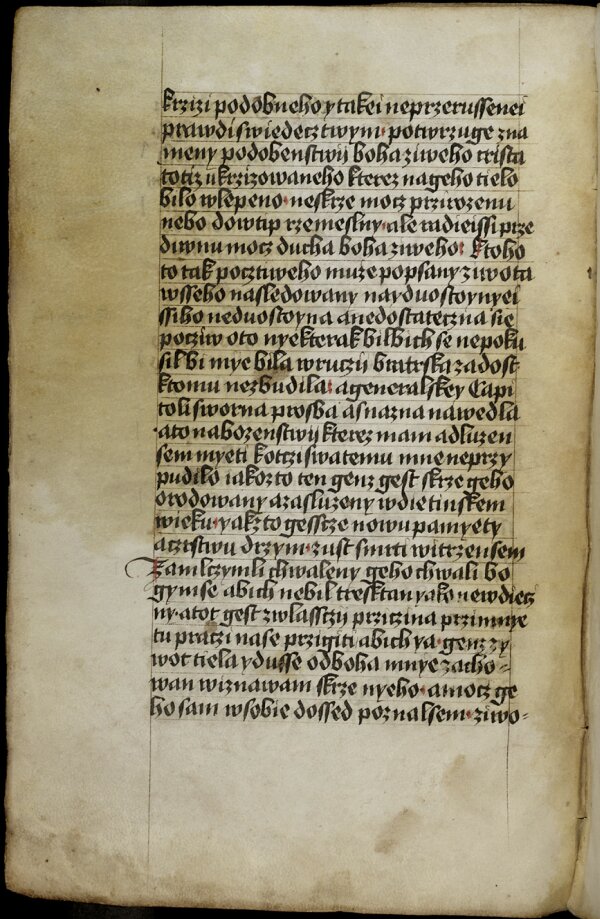 krzizi podobneho y takei neprzerussenei
prawdi swiedecztwym· potwrzuge zna
meny podobenstwij boha ziweho crista
totiz ukrizowaneho kterez nageho tielo
bilo wlepeno· neskrze mocz prziro zenu
nebo dowtip rzemeslny· ale radieissi prze
diwnu mocz ducha boha ziweho· Ktoho
to tak pocztiweho muze popsany ziwota
wsseho nasledowany nayduostoynyei
ssiho neduostoyna anedostateczna sie
pocziw oto nyekterak bil bich se nepoku
sil bi mye bila wruczij bratrska zadost
ktomu nezbudila· a generalskey Capi
toli sworna prosba a snazna nawedla
ato nabozenstwij kterez mam adluzen
sem myeti kotczi swatemu mne neprzy
pudilo iakozto ten genz gest skrze geho
orodowany azasluzeny wdietinskem
wieku· yakzto gesscze nowu pamyety
aczistwu drzym· zust smrti witrzen sem
Zamlczymli chwaleny geho chwali bo
gym se abich nebil tresktan yako newdiecz
ny· atot gest zwlasstij prziczina przimnye
tu praczi nase przigiti abich ya· genz zy
wot tiela y dusse odboha mnye zacho-
wan wiznawam skrze nyeho· amocz ge
ho sam wsobie dossed poznal sem· ziwo-